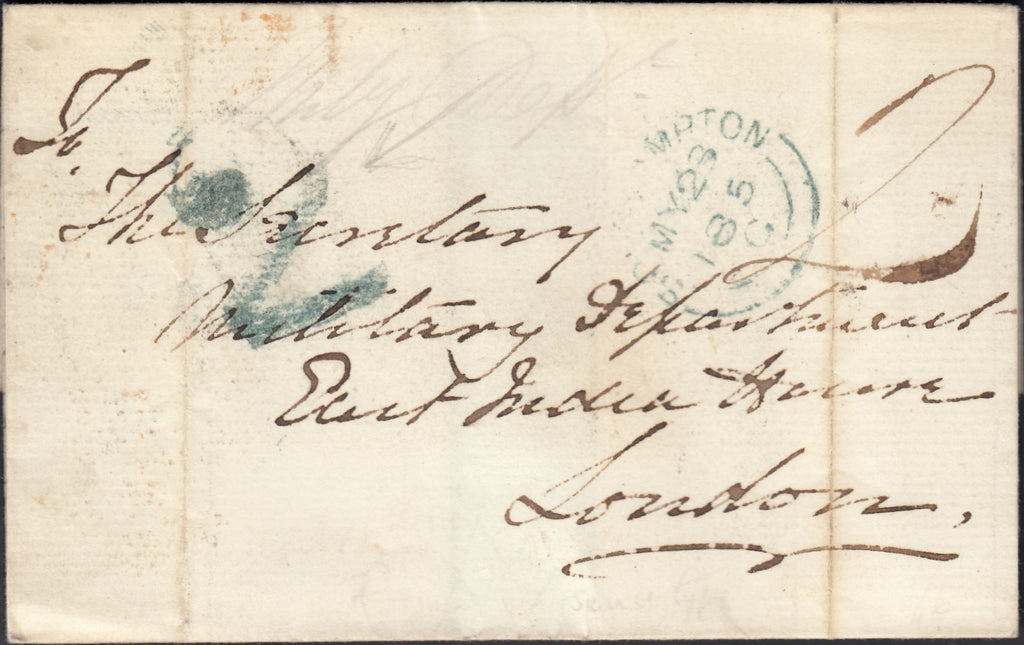 To,
The Secretary
Military Department
East India House
London,
2
2
MPTON
MY 23
185
C